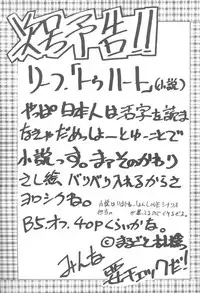 次号予告!!
リーフ「トゥハート」(小説)
やっぱ日本人は活字を読ま
なきゃだめっしょーとゆーことで
小説っす。まぁそのかわり
さし絵、バリバリ入れるからさ
ヨロシクね。
B5.オフ.40Pくらいかな。
みんな
要チェックだ!!